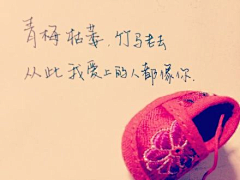 青梅枯萎，竹马老去
从此我爱上的人都像你.